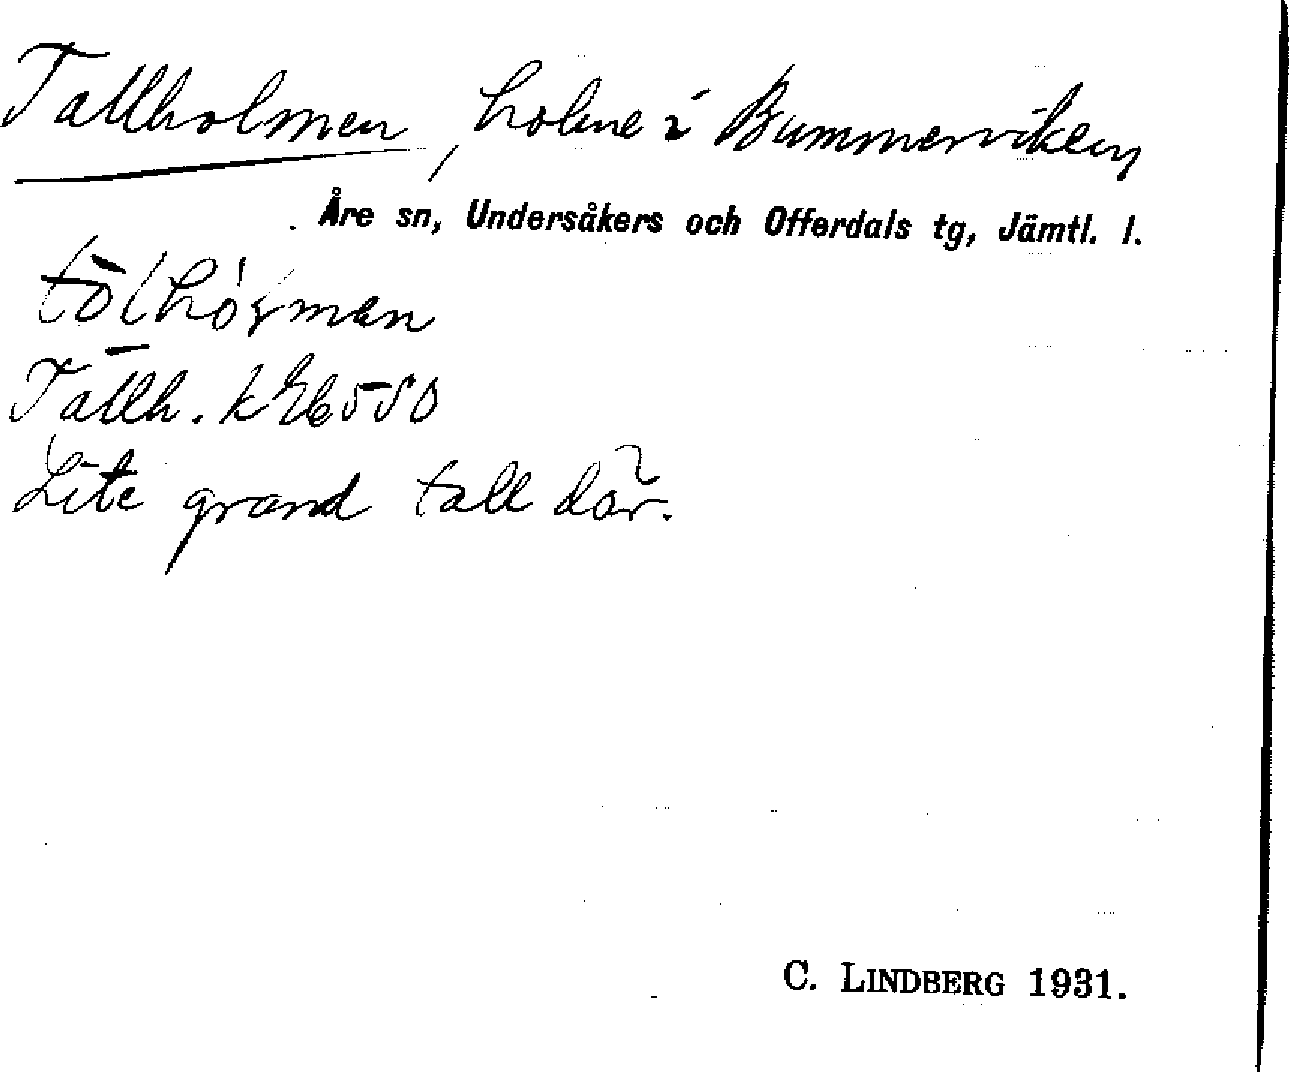 Tallholmen, holme i Bummerviken
Åre sn, Undersåkers och Offerdals tg, Jämtl. l.
Tallh.
Lite grand tall där.
C. LINDBERG 1931.